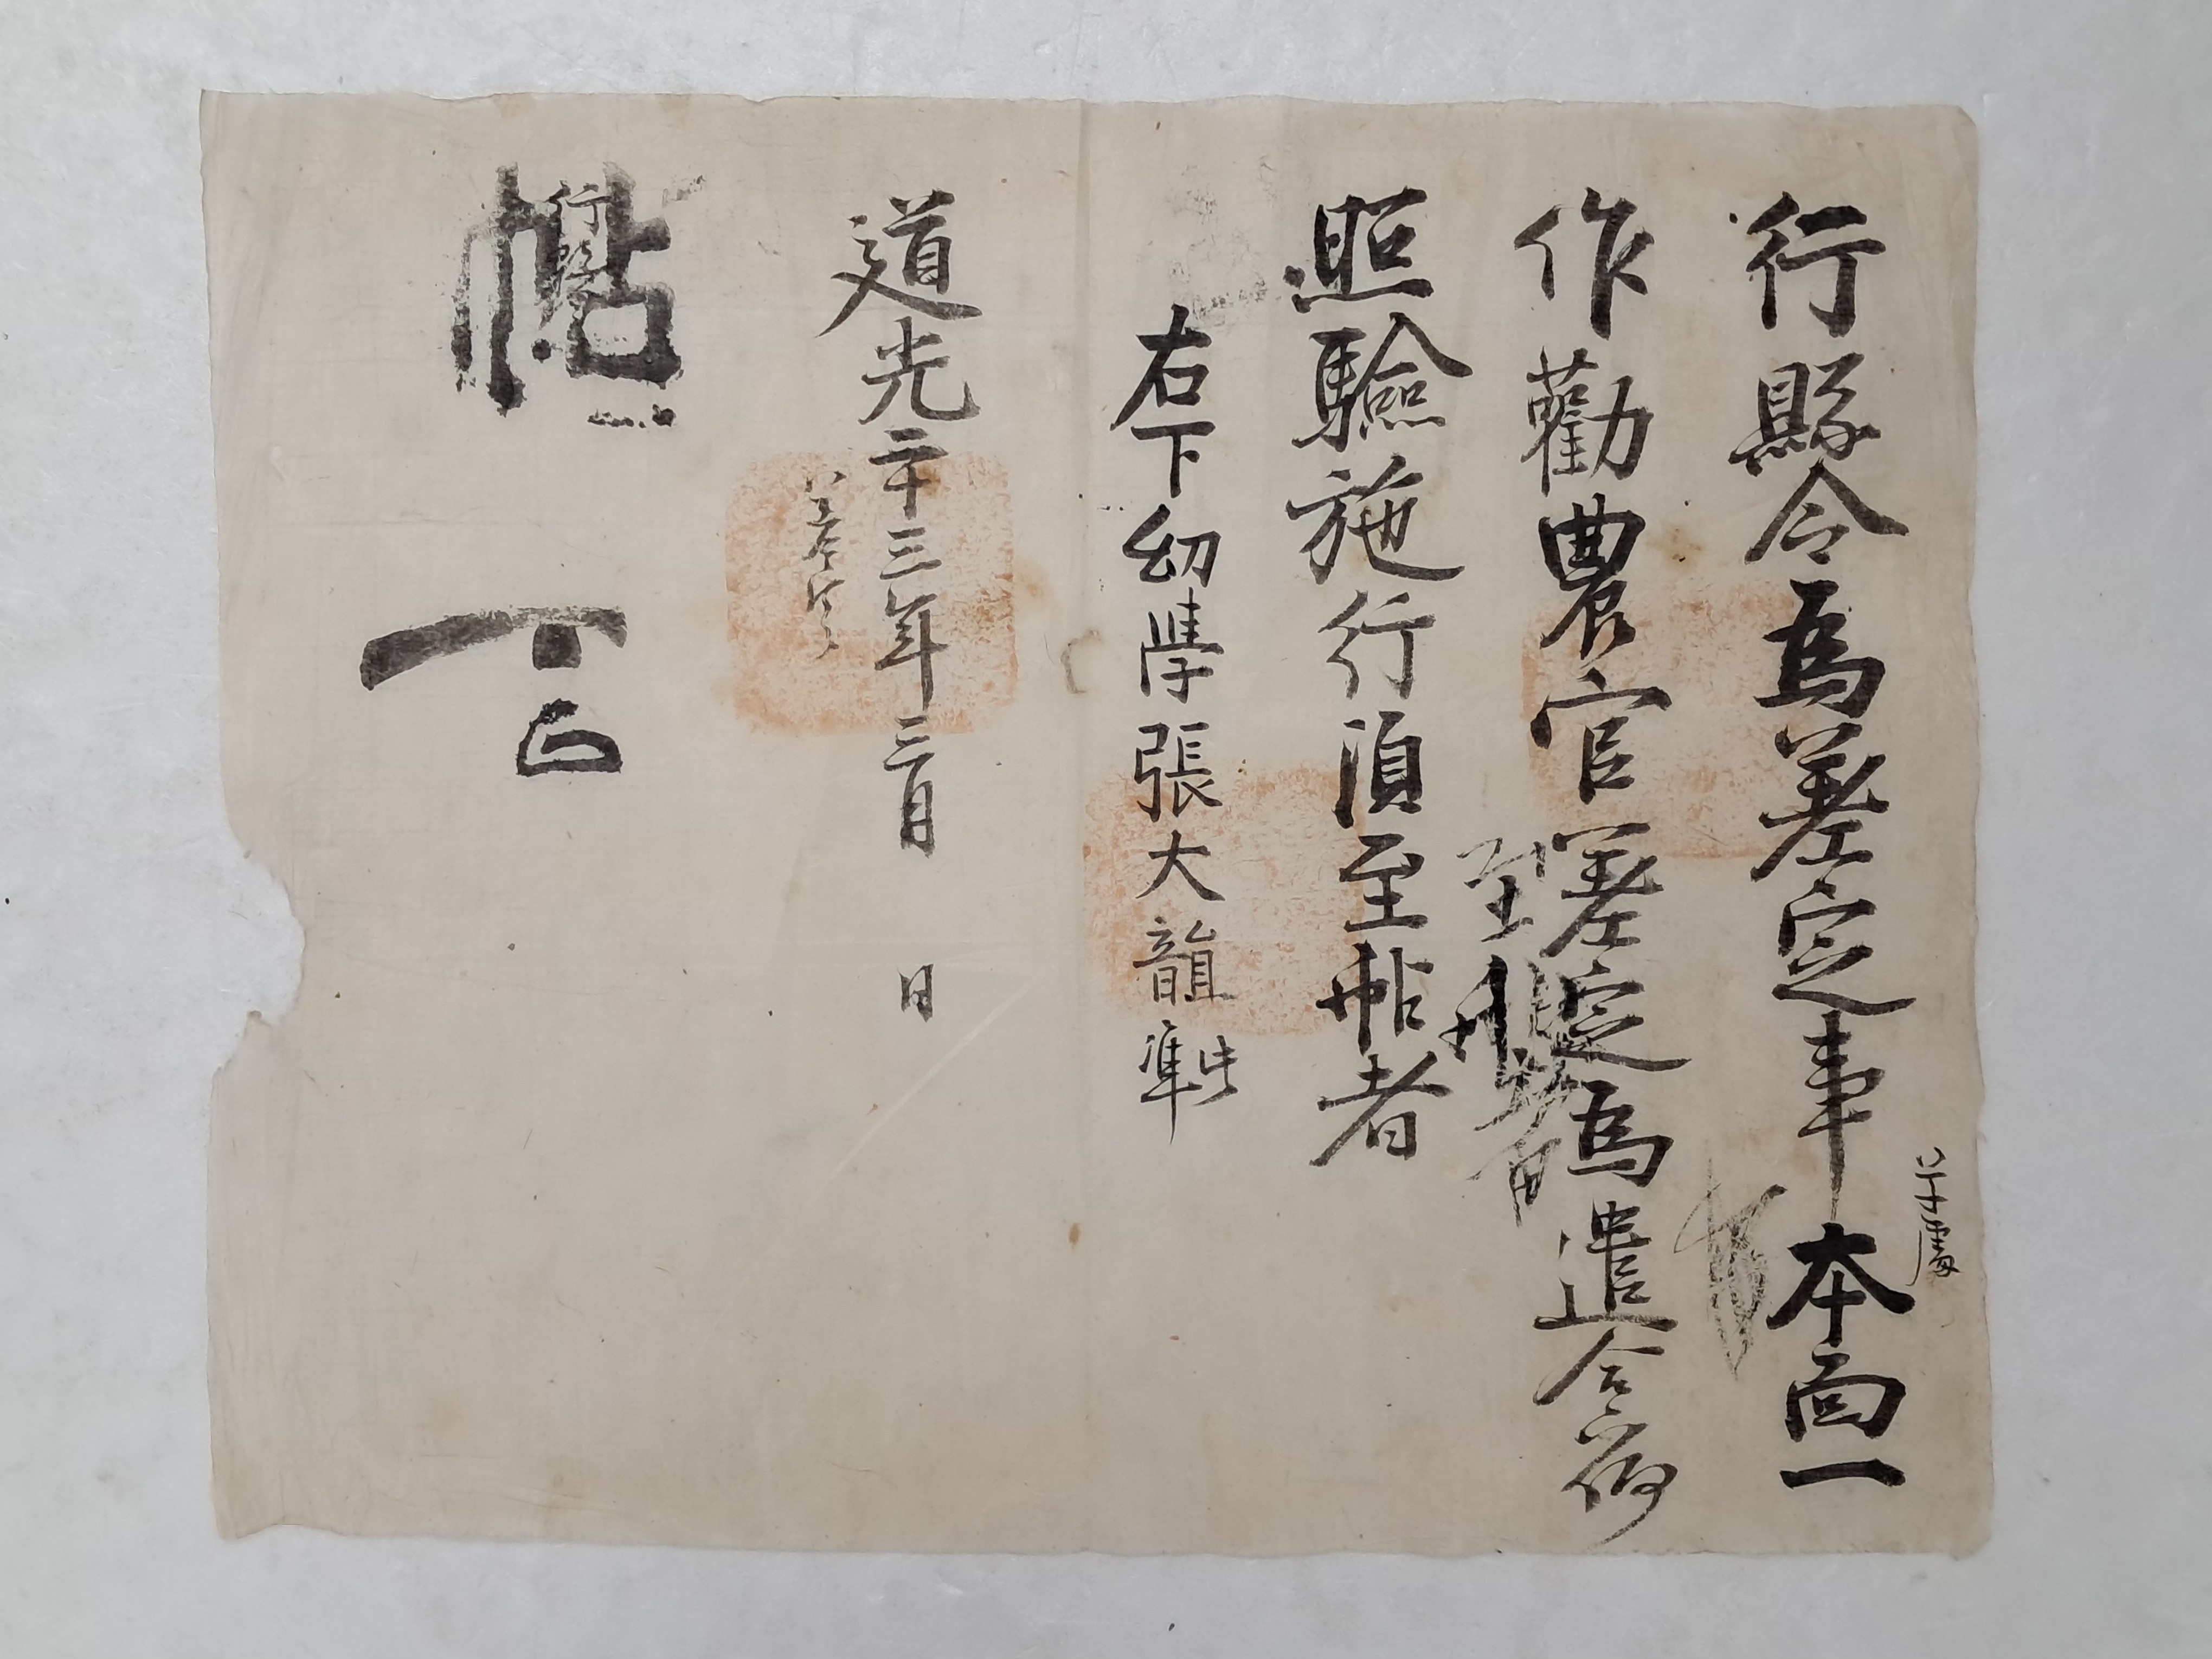 行縣令爲差定事本面一
作勸農官差定爲遣合仰
照驗施行須至帖者
右下幼學張大龍準此
道光二十三年三月 日
差定
帖
行縣令